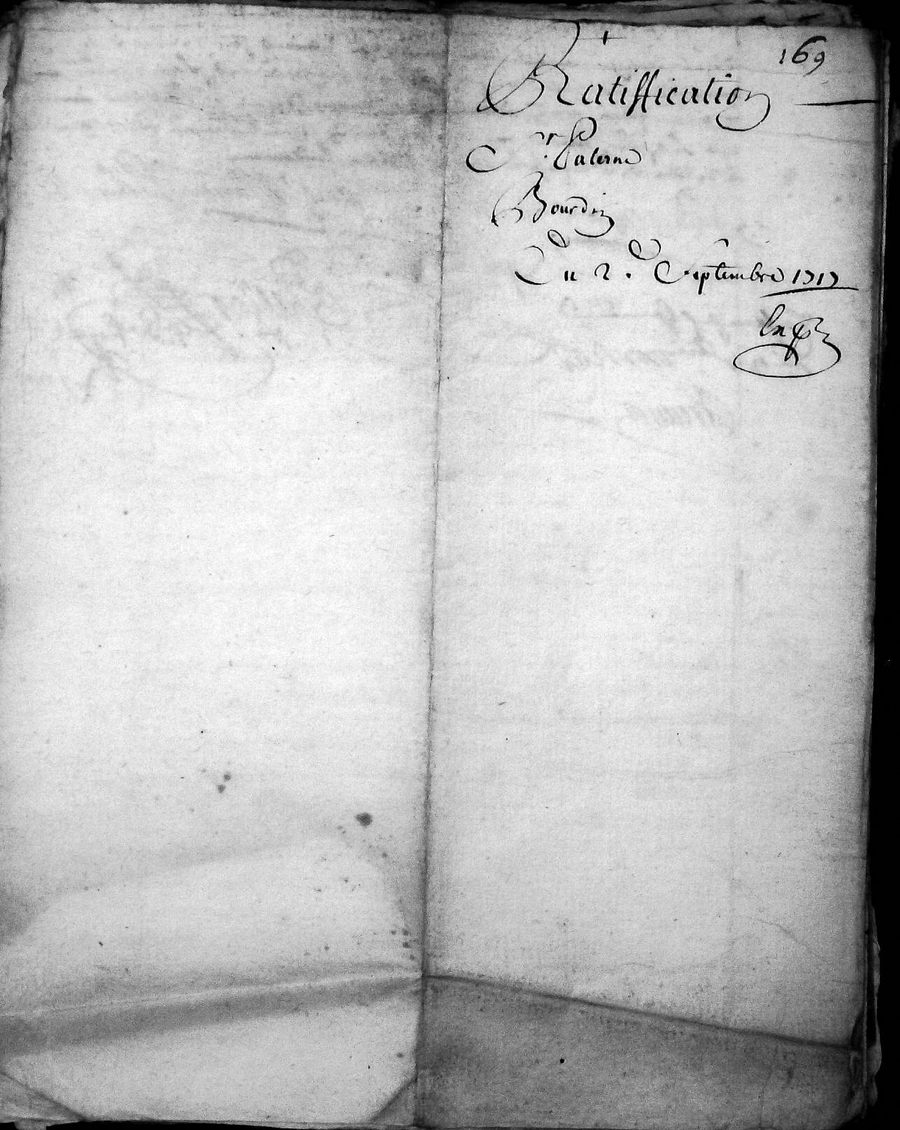 169
Ratiffication
Sr. Palerne
Bourdin
Du 2e. Septembre 1717